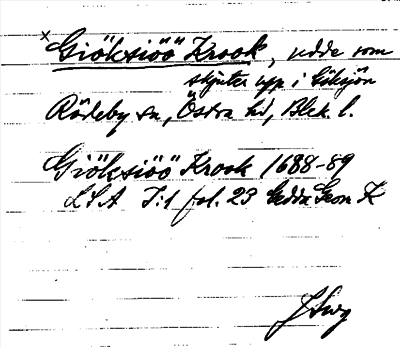 × Giöksiöö Krook, udde som
skjuter upp i Göksjön
Rödeby sn, Östra hd, Blek. l.
Giöksiöö Krook 1688-89
LSA I:1 fol. 23 Geom K